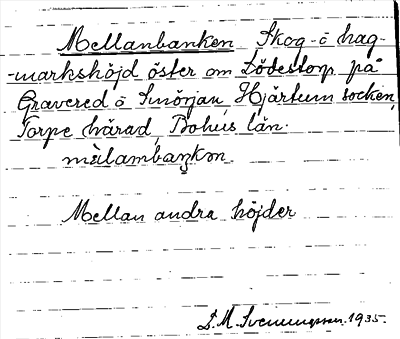 Mellanbanken Skog- o hag-
-markshöjd öster om Lödestorp på
Gravered o Smörjan, Hjärtum socken,
Torpe härad, Bohus län.
mèlambaŋkɷn.
Mellan andra höjder
S. M. Svenungsson. 1935.